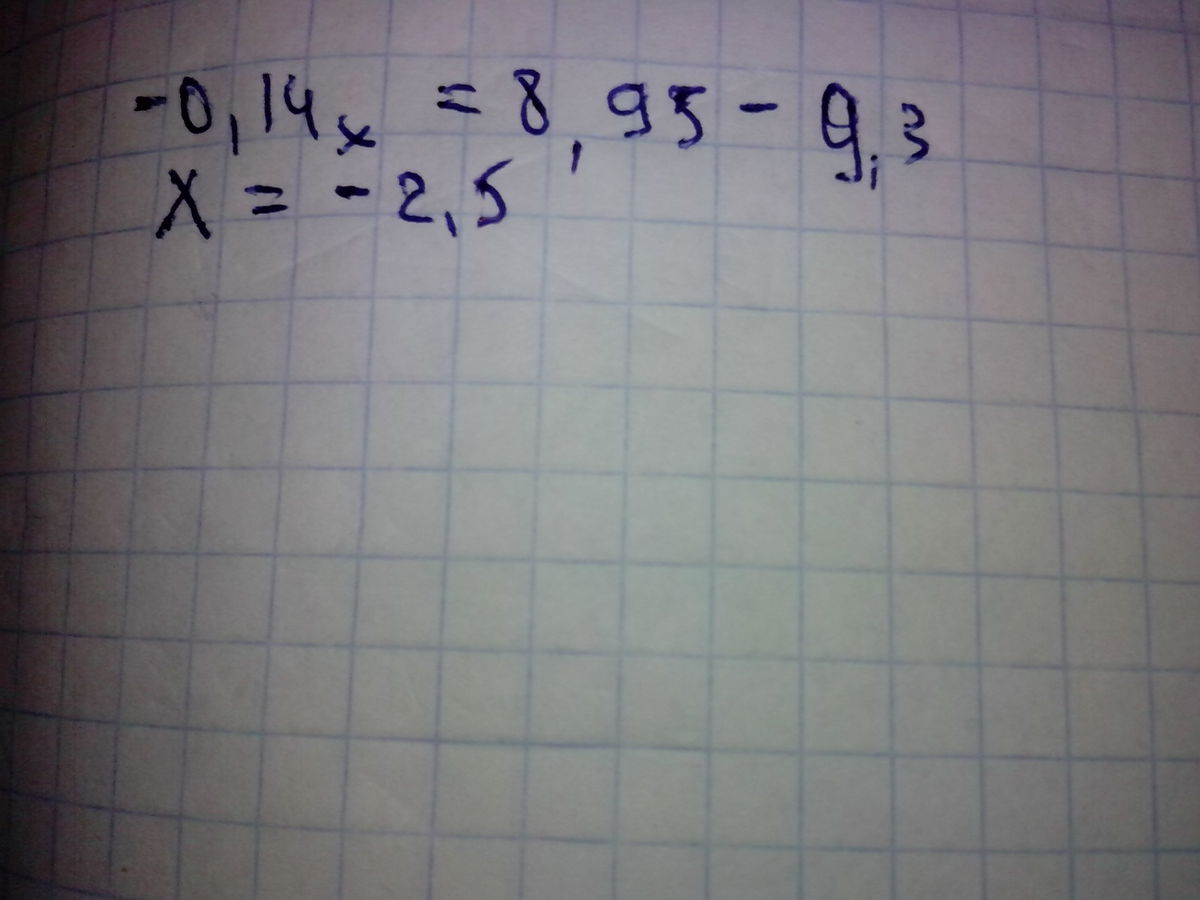 -0,14x = 8,95 - 9,3
X = - 2,5